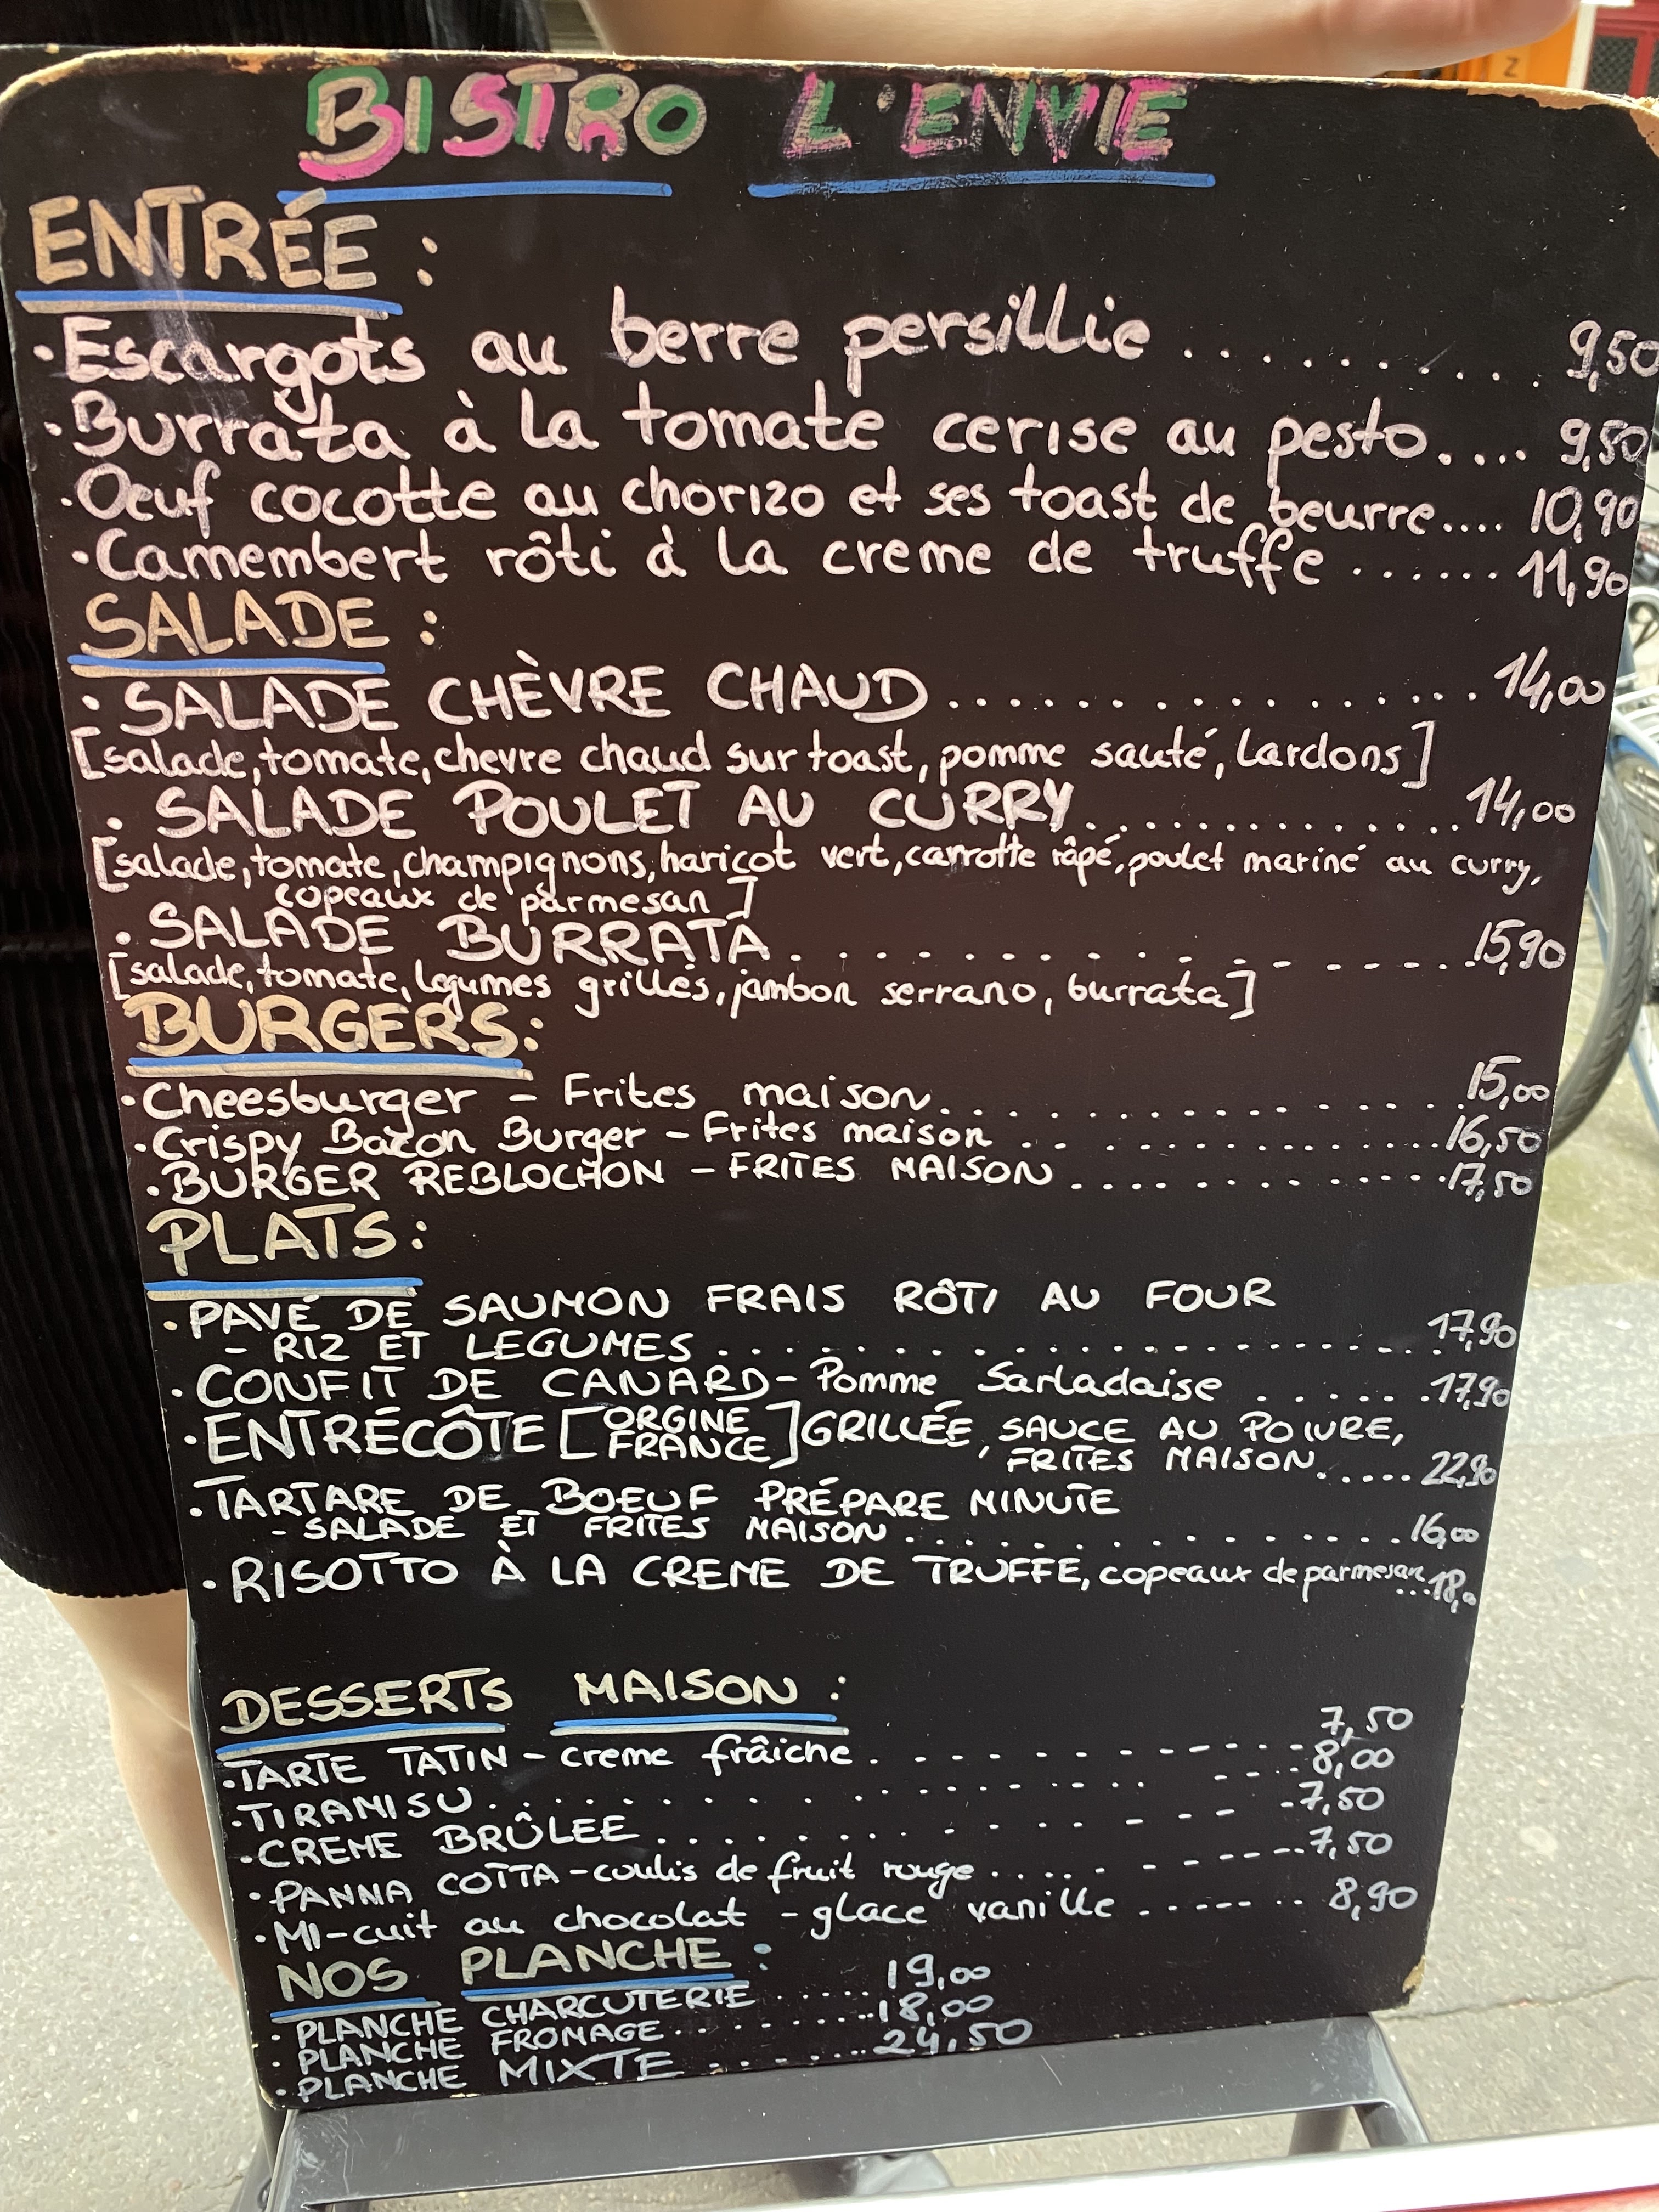 BISTRO L'ENVIE
ENTRÉE :
·Escargots au berre persillie ............. 9,50
·Burrata à la tomate cerise au pesto.... 9,50
·Oeuf cocotte au chorizo et ses toast de beurre.... 10,90
·Camembert rôti à la creme de truffe ....... 11,90
SALADE :
·SALADE CHÈVRE CHAUD.................. 14,00
[salade, tomate, chevre chaud sur toast, pomme sauté, lardons]
·SALADE POULET AU CURRY............. 14,00
[salade, tomate, champignons, haricot vert, carrotte râpé, poulet mariné au curry,
copeaux de parmesan]
·SALADE BURRATA.................. 15,90
[salade, tomate, legumes grillés, jambon serrano, burrata]
BURGERS:
·Cheesburger - Frites maison.................. 15,00
·Crispy Bacon Burger - Frites maison ............... 16,50
·BURGER REBLOCHON - FRITES MAISON .............. 17,50
PLATS:
·PAVÉ DE SAUMON FRAIS RÔTI AU FOUR
- RIZ ET LEGUMES ....................... 17,90
·CONFIT DE CANARD - Pomme Sarladaise ....... 17,90
·ENTRÉCÔTE [ORGINE FRANCE] GRILLÉE, SAUCE AU POIVRE,
FRITES MAISON...... 22,90
·TARTARE DE BOEUF PRÉPARE MINUTE
- SALADE ET FRITES MAISON ................ 16,00
·RISOTTO À LA CREME DE TRUFFE, copeaux de parmesan...18,0
DESSERTS MAISON :
·TARTE TATIN - creme frâiche .............. 7,50
·TIRAMISU.................. 8,00
·CREME BRÛLEE ............... 7,50
·PANNA COTTA - coulis de fruit rouge ............ 7,50
·MI-cuit au chocolat - glace vanille ........ 8,90
NOS PLANCHE :
·PLANCHE CHARCUTERIE ...... 19,00
·PLANCHE FROMAGE.......... 18,00
·PLANCHE MIXTE ........ 24,50